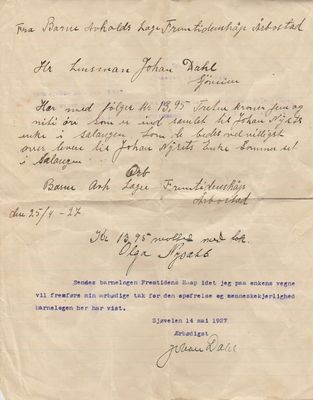 Fra Barne Avholds Lage Fremtidenshåp Årbostad
Hr Lensman Johan Dahl
Sjøveien
Her med følger kr 13,95 Tretten kroner fem og
niti øre Som er ind samlet til Johan Nysets
enke i Salangen Som de bedes velvilligst
over levere til Johan Nysets Enke
i Salangen
Årb
Barne Avh Lage Fremtidenshåp
Årbostad
den 25/4 - 27
Kr 13,95 motta med tak.
Olga
Sendes barnelagen Fremtidens Haap idet jeg paa enkens vegne
vil fremføre min ærbødige tak for den opofrelse og menneskekjærlighed
barnelagen her har vist.
Sjøveien 14 mai 1927
Ærbødigst
Johan Dahl